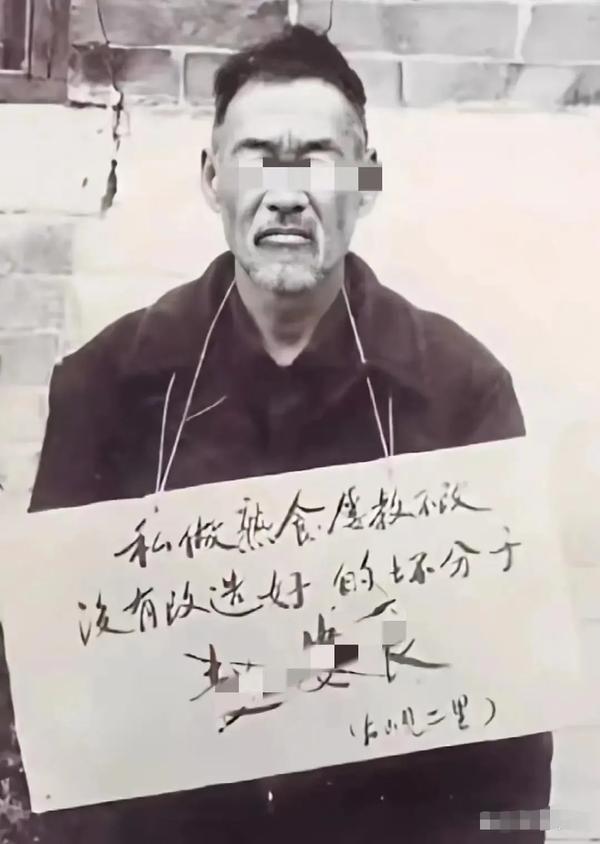 私做熟食屡教不改
没有改造好的坏分子
(古岘二里)